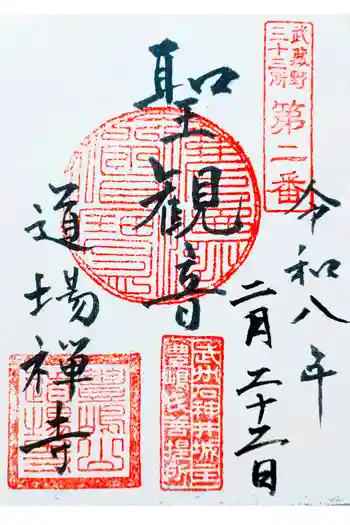 武蔵野
三十三所
第二番
令和八年
二月二十二日
聖観音
武州石神井城主
豊嶋氏菩提所
道場禅寺